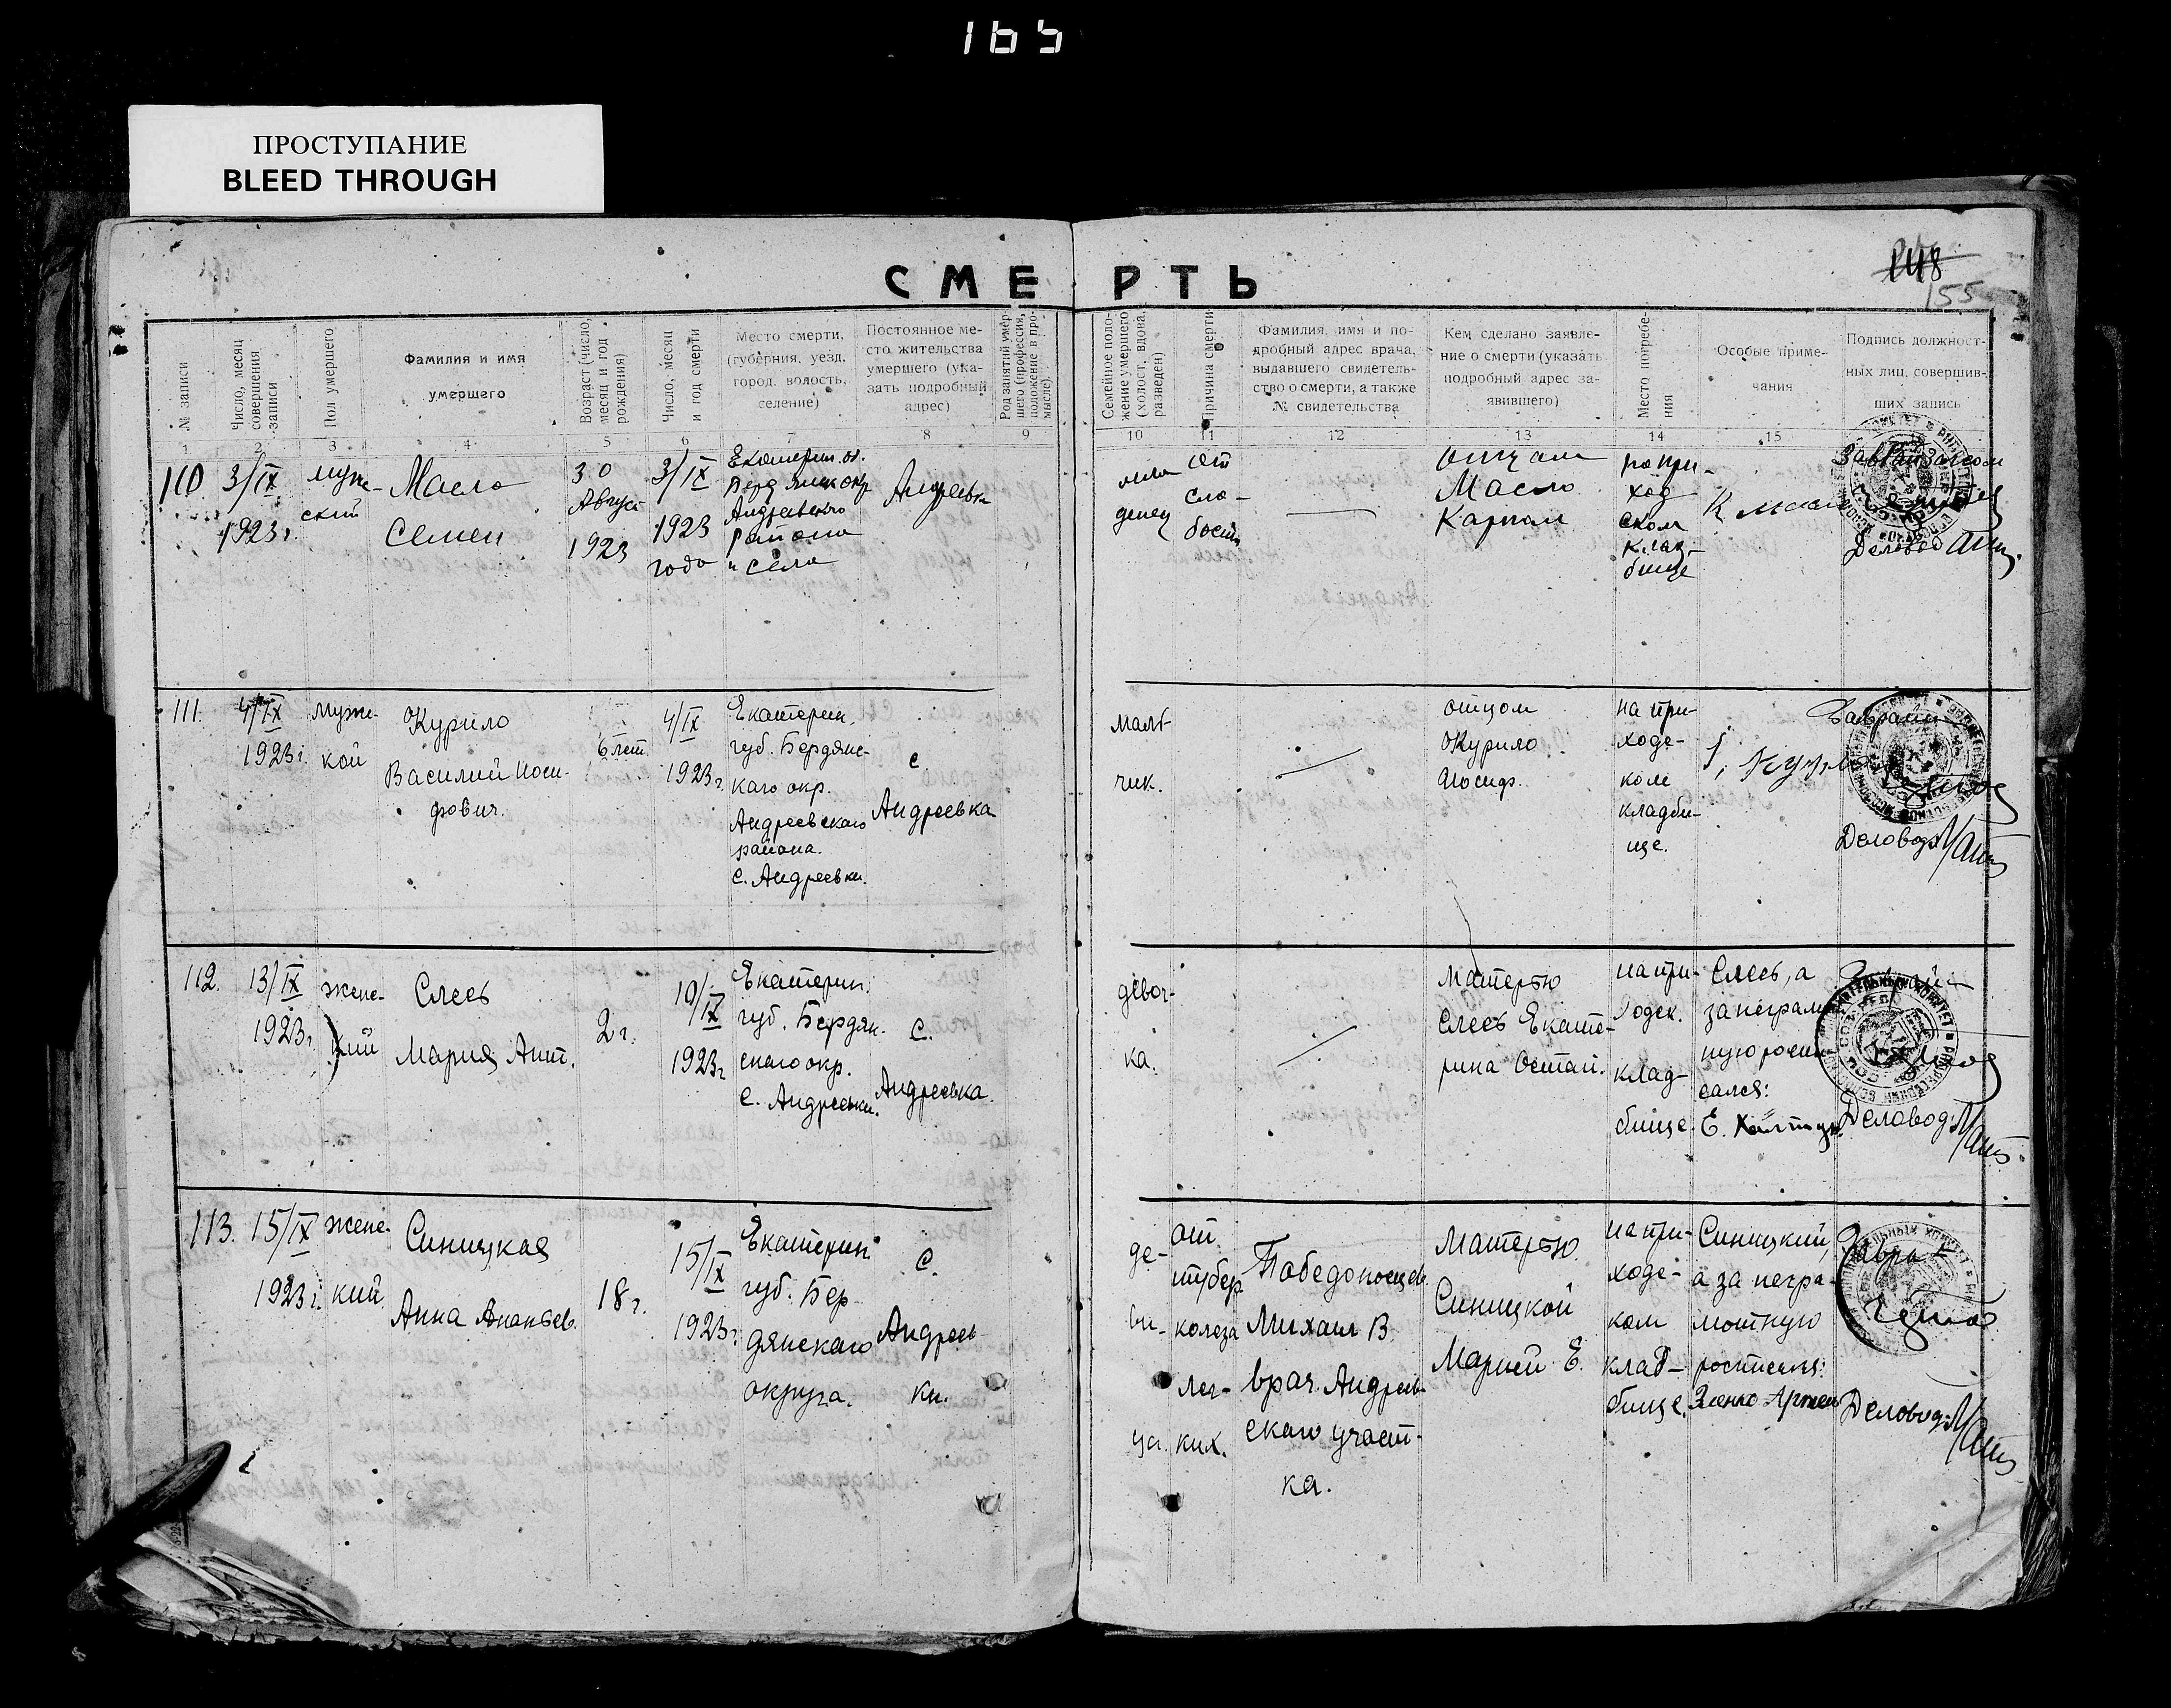 165
ПРОСТУПАНИЕ
BLEED THROUGH
148
155
СМЕРТЬ
№ записи
Число, месяц совершения записи
Пол умершего
Фамилия и имя
умершего
Возраст (число, месяц и год рождения)
Число, месяц и год смерти
Место смерти,
(губерния, уезд,
город, волость,
селение)
Постоянное ме-
сто жительства
умершего (ука-
зать подробный
адрес)
Род занятий умер-
шего (профессия,
положение в про-
мысле)
Семейное поло-
жение умершего
(холост, вдова,
разведен)
Причина смерти
Фамилия, имя и по-
дробный адрес врача,
выдавшего свидетель-
ство о смерти, а также
№ свидетельства
Кем сделано заявле-
ние о смерти (указать
подробный адрес за-
явившего)
Место погребе-
ния
Особые приме-
чания
Подпись должност-
ных лиц, совершив-
ших запись
1 2 3 4 5 6 7 8 9 10 11 12 13 14 15
110
3/IX
1923г.
муж-
ский
Масло
Семен
30
Август
1923
3/IX
1923
года
Екатерин.
Андреевского
района
села
Андреевка
мла
денец
от
сла-
бости
отцом
Масло
Карпом
на при-
ход
ском
клад-
бище
ЗавRайзагсом
Деловод
111.
4/IX
1923г.
муж-
кой
Курило
Василий Иоси-
фович.
6 лет
4/IX
1923г.
Екатерин.
губ. Бердянс-
каго окр.
Андреевскаго
района.
с. Андреевки.
с.
Андреевка
маль-
чик.
отцом
Курило
Иосиф.
на при-
ходс-
ком
кладби-
ще.
Деловод:
112.
13/IX
1923г.
женс-
кий
Слесь
Мария Ант.
2г.
10/IX
1923г
Екатерин.
губ. Бердян.
скаго окр.
с. Андреевки.
с.
Андреевка.
девоч-
ка.
Матерью
Слесь Екате-
рина Остап.
на при-
ходск.
клад-
бище.
Слесь, а
за неграм
ную роспи
сался:
Е.
Деловод:
113.
15/IX
1923г.
женс-
кий.
Синицкая
Анна Ананьев.
18г.
15/IX
1923г.
Екатерин
губ. Бер
дянскаго
округа.
с.
Андреев-
ки.
де-
ви-
ца.
от
тубер
колеза
лег-
ких.
Победоносцев
Михаил В
врач Андреев-
скаго участ-
ка.
Матерью
Синицкой
Марией Е.
на при-
ходс-
ком
клад-
бище.
Синицкий,
а за негра-
мотную
росписался:
Зленко Артем
Деловод: